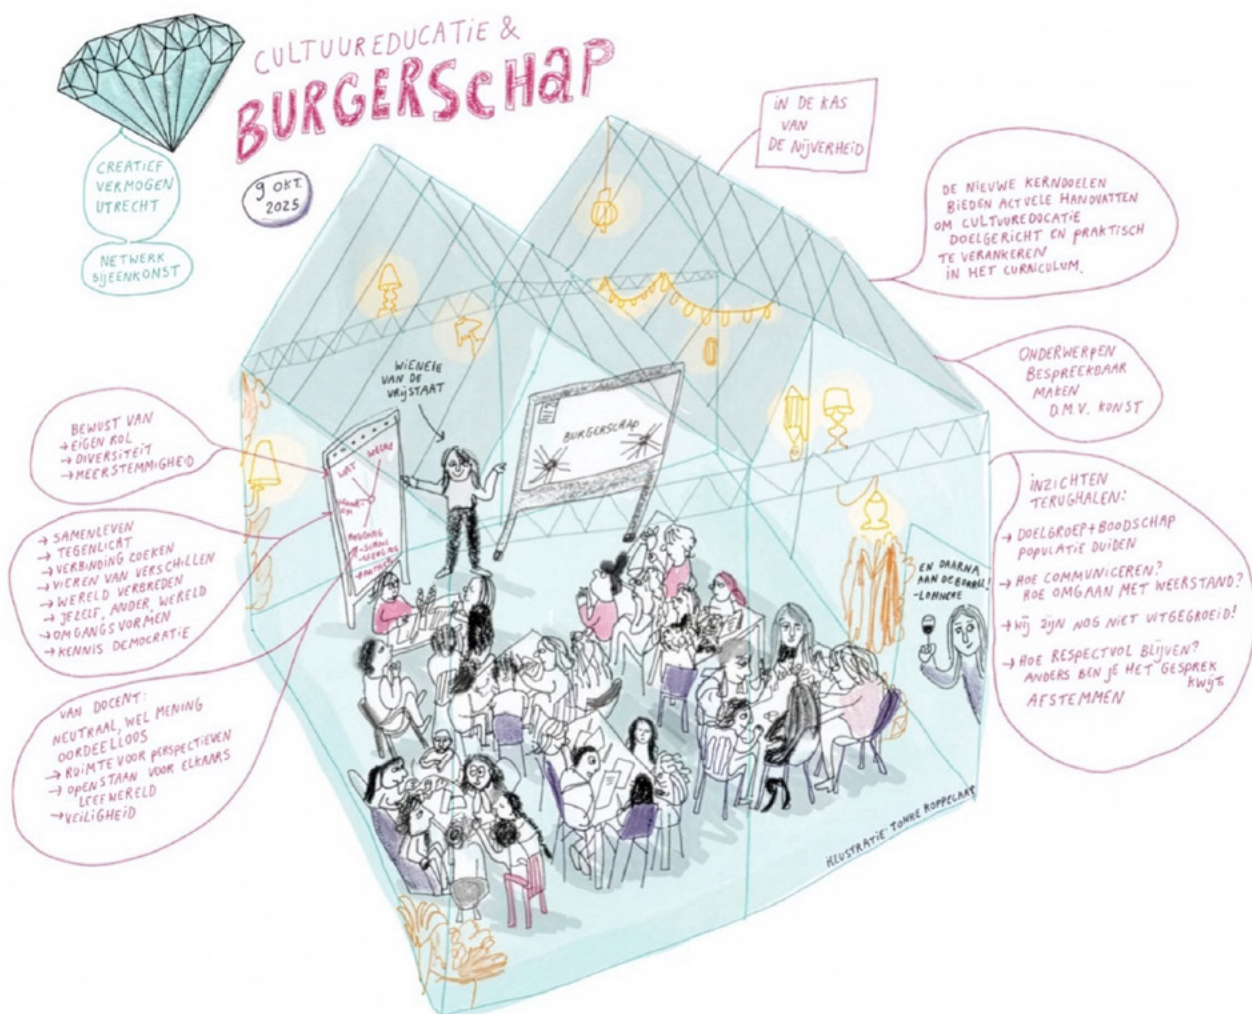 CULTUUREDUCATIE &
BURGERSCHAP
9 OKT.
2025
CREATIEF
VERMOGEN
UTRECHT
NETWERK
BIJEENKOMST
IN DE KAS
VAN
DE NIJVERHEID
DE NIEUWE KERNDOELEN
BIEDEN ACTUELE HANDVATTEN
OM CULTUUREDUCATIE
DOELGERICHT EN PRAKTISCH
TE VERANKEREN
IN HET CURRICULUM.
ONDERWERPEN
BESPREEKBAAR
MAKEN
D.M.V. KUNST
INZICHTEN
TERUGHALEN:
→ DOELGROEP + BOODSCHAP
POPULATIE DUIDEN
→ HOE COMMUNICEREN?
HOE OMGAAN MET WEERSTAND?
→ WIJ ZIJN NOG NIET UITGEGROEID!
→ HOE RESPECTVOL BLIJVEN?
ANDERS BEN JE HET GESPREK
KWIJT
AFSTEMMEN
WIENEKE
VAN DE
VRIJSTAAT
BURGERSCHAP
WAT
WELKE
BEWUST VAN
→ EIGEN ROL
→ DIVERSITEIT
→ MEERSTEMMIGHEID
→ SAMENLEVEN
→ TEGENLICHT
→ VERBINDING ZOEKEN
→ VIEREN VAN VERSCHILLEN
→ WERELD VERBREDEN
→ JEZELF, ANDER, WERELD
→ OMGANGSVORMEN
→ KENNIS: DEMOCRATIE
VAN DOCENT:
NEUTRAAL, WEL MENING
OORDEELLOOS
→ RUIMTE VOOR PERSPECTIEVEN
→ OPENSTAAN VOOR ELKAARS
LEEFWERELD
→ VEILIGHEID
EN DAARNA
AAN DE BORREL!
ILLUSTRATIE: TOMKE KOPPELAAR